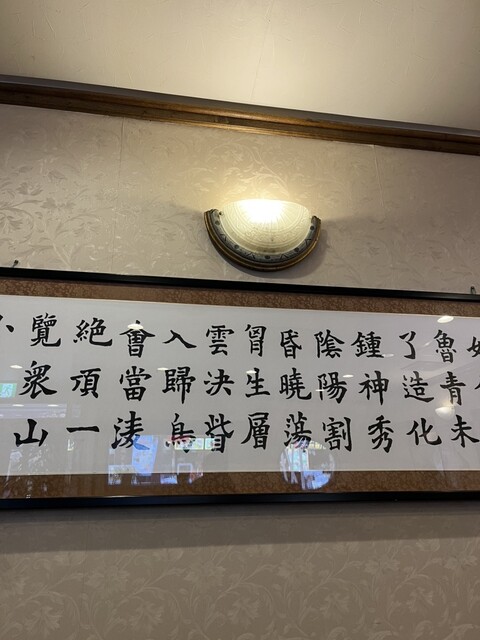 魯青未
了造化
鍾神秀
陰陽割
昏曉蕩
胷生層
雲決眥
入歸鳥
會當淩
絕頂一
覽衆山
小